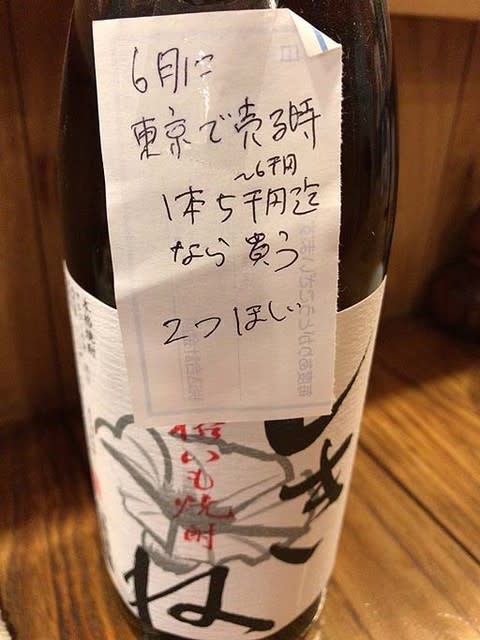 6月に
東京で売る時
~6千円
1本5千円迄
なら買う
2つほしい
いも焼酎
ね
本格焼酎